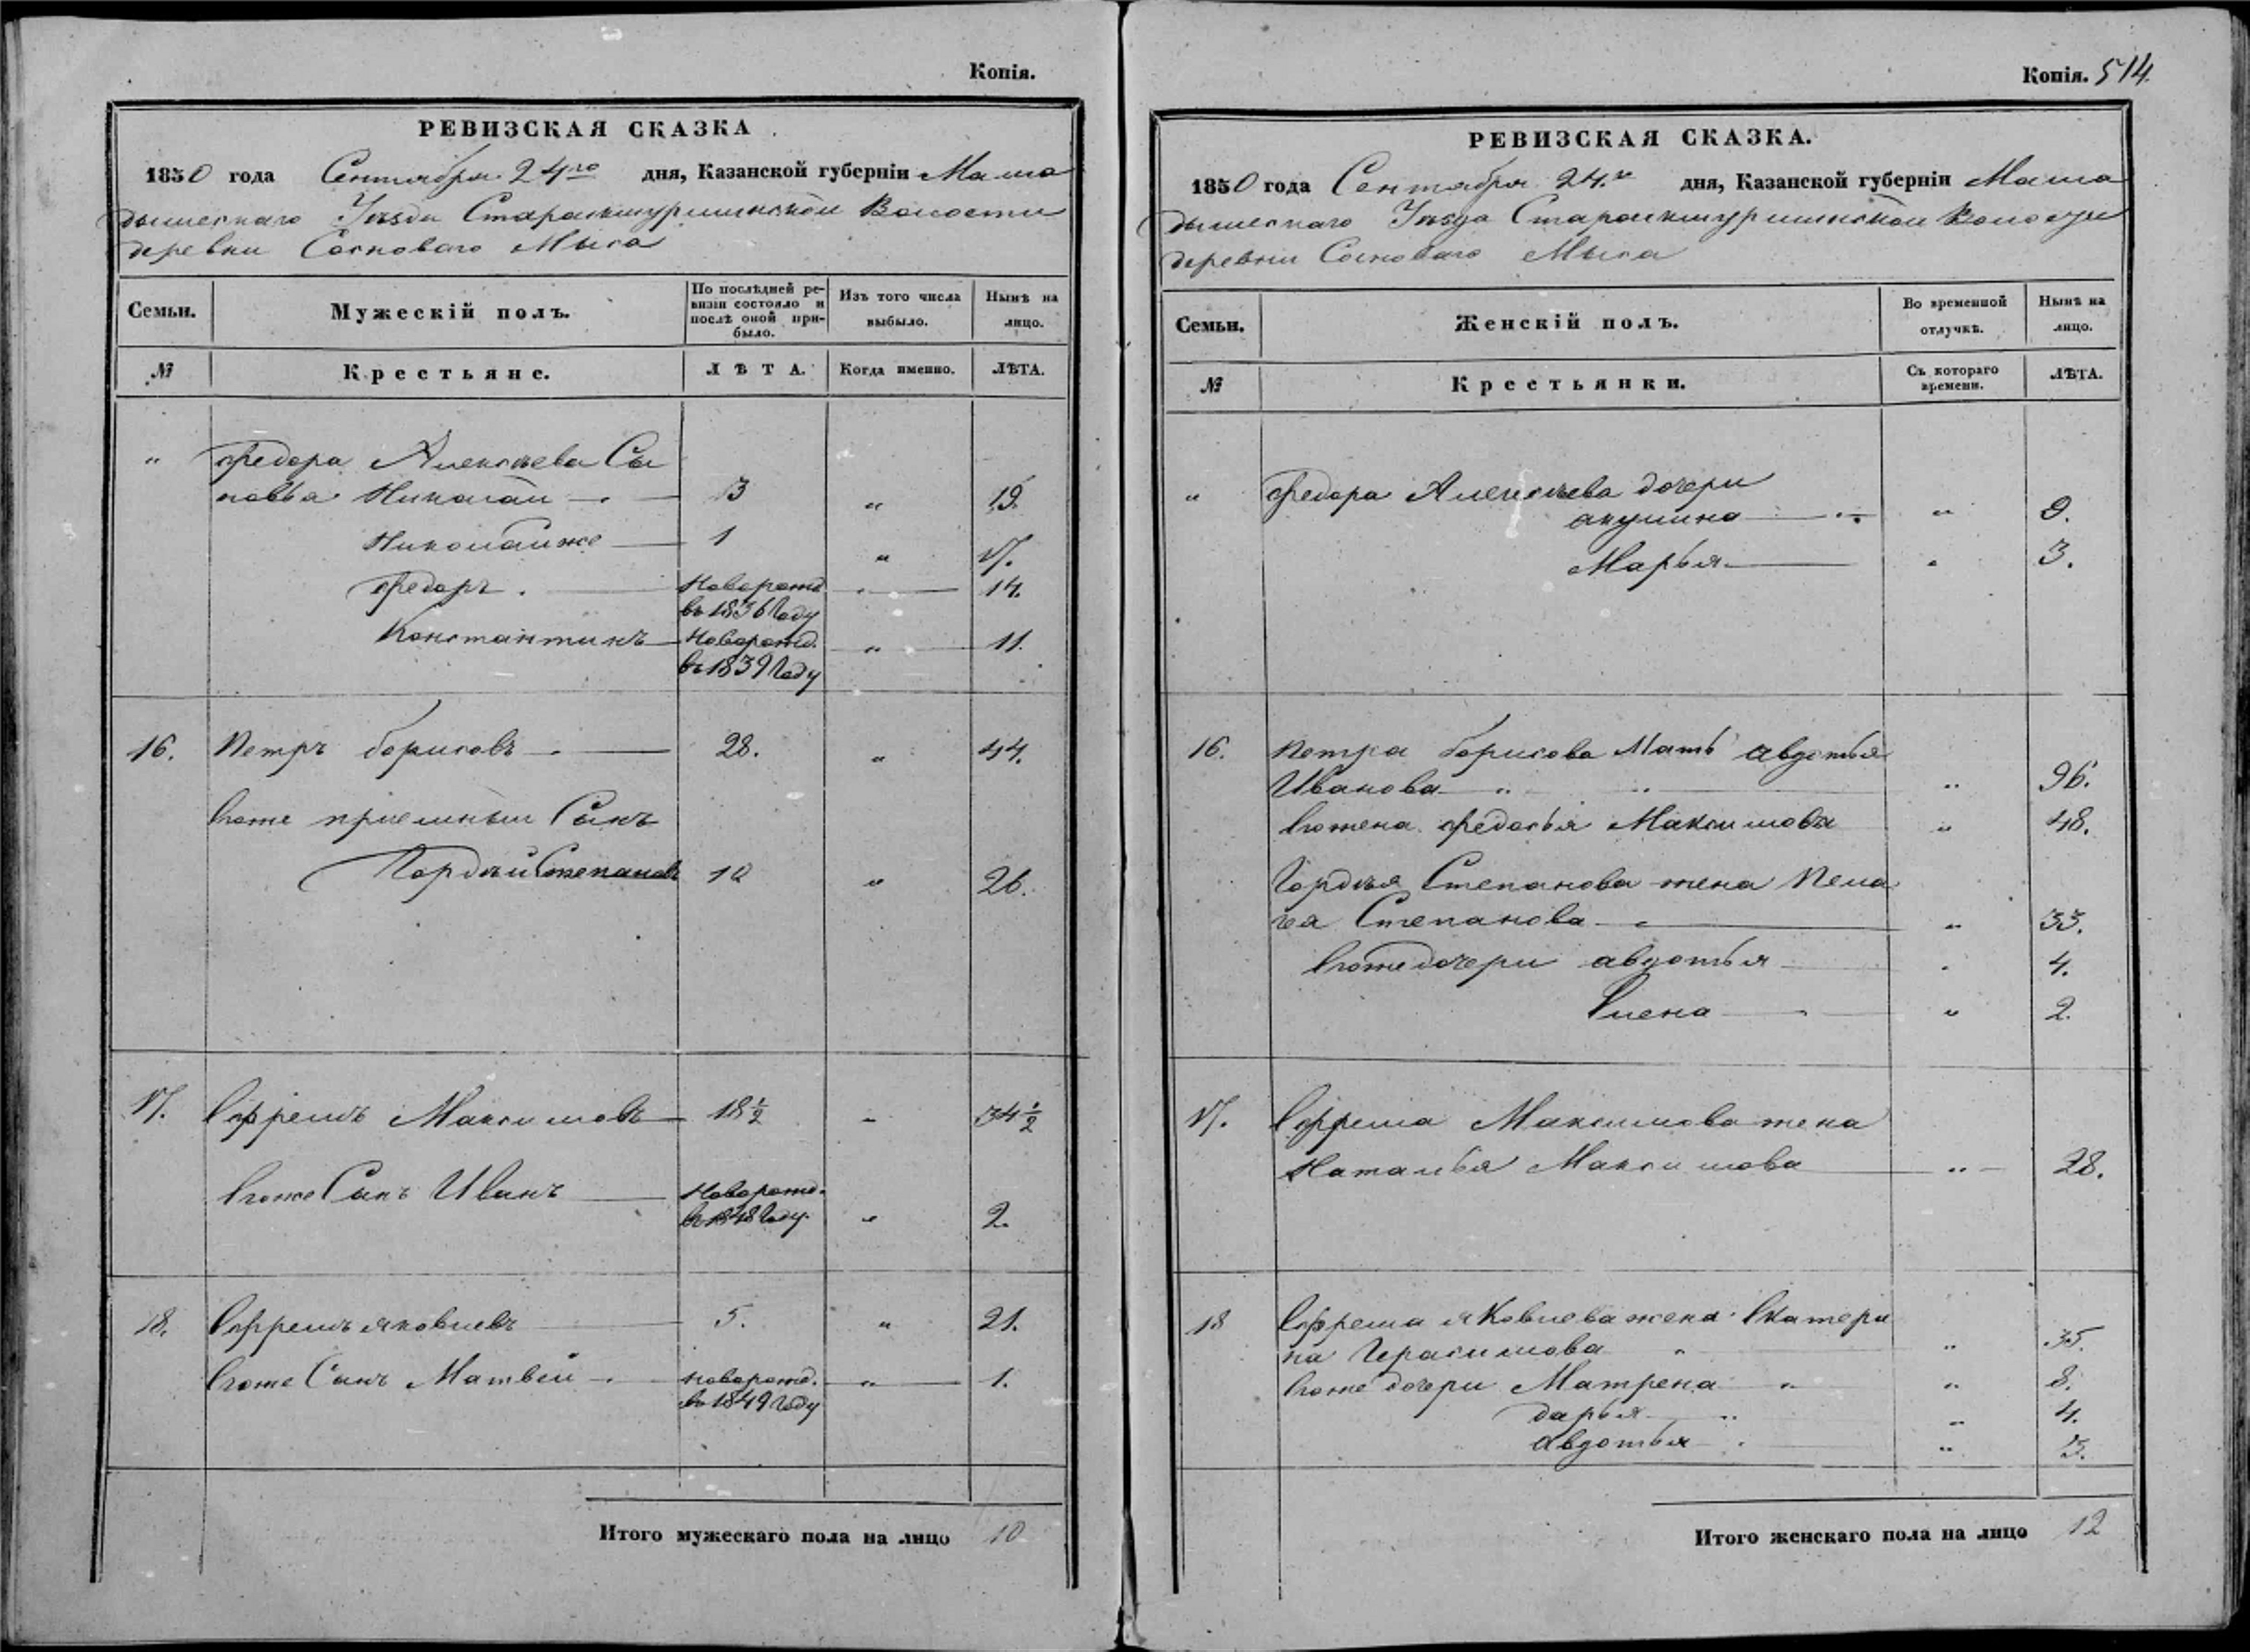 Копія.
РЕВИЗСКАЯ СКАЗКА
1850 года Сентября 24го дня, Казанской губерніи Мама
дышскаго Уѣзда Волости
деревни Сосноваго Мыса
Семьи.
Мужескій полъ.
По послѣдней ре-
визіи состояло и
послѣ оной при-
было.
Изъ того числа
выбыло.
Нынѣ на
лицо.
№
Крестьяне.
ЛѢТА.
Когда именно.
ЛѢТА.
" Федора Алексѣева Сы
новья Николай 3 " 19.
Николай же 1 " 17.
Федоръ Новорожд. " 14.
въ 1836 Году
Константинъ Новорожд. " 11.
въ 1839 Году
16. Петръ Борисовъ 28. " 44.
Егоже приемный Сынъ
Гордѣй Степановъ 10 " 26.
17. Ефремъ Максимовъ 18½ " 34½
Егоже Сынъ Иванъ Новорожд.
въ 1848 Году " 2.
18. Ефремъ яковлевъ 5. " 21.
Егоже Сынъ Матвѣй новорожд. " 1.
въ 1849 Году
Итого мужескаго пола на лицо 10
Копія. 514.
РЕВИЗСКАЯ СКАЗКА.
1850 года Сентября 24.го дня, Казанской губерніи Мама
дышскаго Уѣзда Волости
деревни Сосноваго Мыса
Семьи.
Женскій полъ.
Во временной
отлучкѣ.
Нынѣ на
лицо.
№
Крестьянки.
Съ котораго
времени.
ЛѢТА.
" Федора Алексѣева дочери
акулина " 9.
Марья " 3.
16. Петра Борисова Мать авдотья
Иванова " 96.
Егожена федосья Максимова " 48.
Гордѣя Степанова жена Пела
гея Степанова " 33.
Егоже дочери авдотья " 4.
Елена " 2.
17. Ефрема Максимова жена
Наталья Максимова " 28.
18 Ефрема яковлева жена Екатери
на Герасимова " 35.
Егоже дочери Матрена " 8.
дарья " 4.
авдотья " 3.
Итого женскаго пола на лицо 12